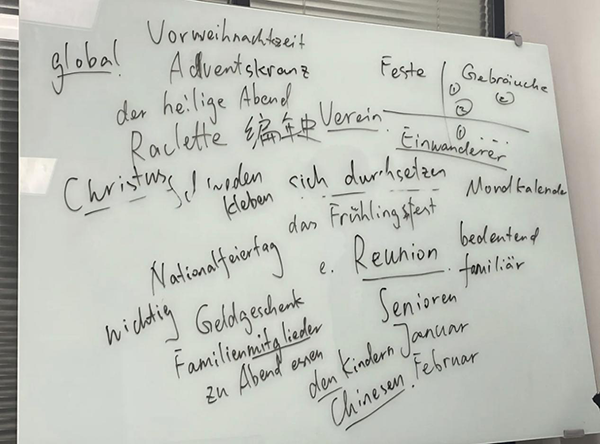 global Vorweihnachtszeit
Adventskranz
Feste Gebräuche
der heilige Abend
① ② ②
Raclette 编年史 Verein
① ...
Einwanderer
Christus
kleben sich durchsetzen Mondkalende
das Frühlingsfest
Nationalfeiertag e. Reunion bedeutend
familiär
wichtig Geldgeschenk Senioren
Familienmitglieder Januar
zu Abend essen den Kindern Februar
Chinesen